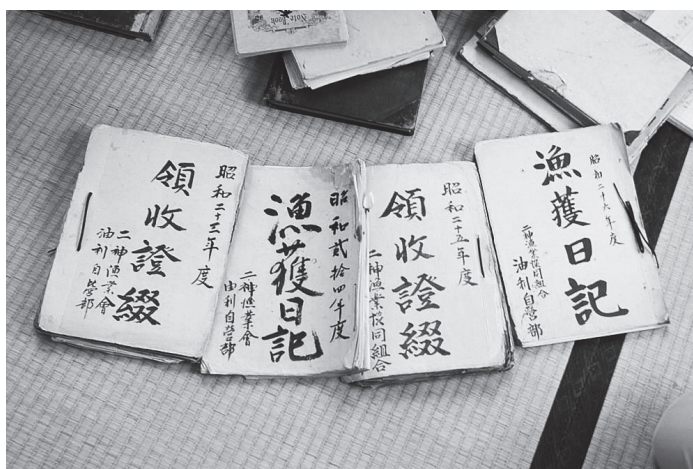 Note Book
昭和二十三年度
領收證綴
二神漁業會
油利自營部
昭和貳拾四年度
漁獲日記
二神漁業會
由利自營部
昭和二十五年度
領收證綴
二神漁業協同組合
昭和二十六年度
漁獲日記
二神漁業協同組合
油利自營部